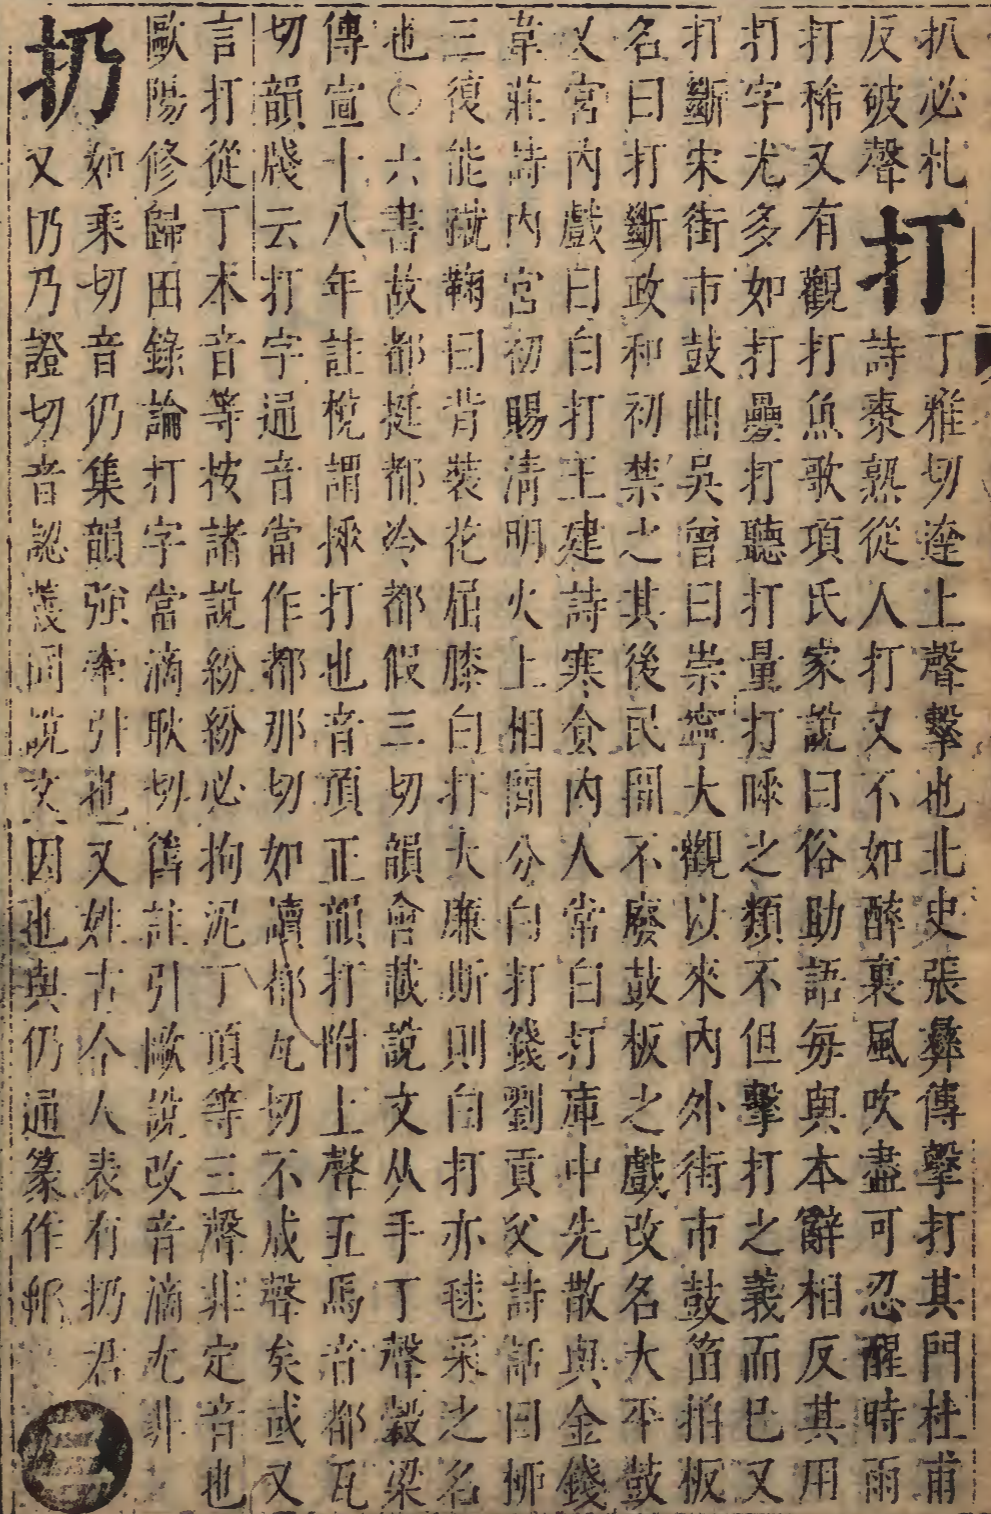 扒必札
反破聲打丁雅切達上聲擊也北史張彝傳擊打其門杜甫
詩棗熟從人打又不如醉裏風吹盡可忍醒時雨
打稀又有觀打魚歌項氏家說曰俗助語每與本辭相反其用
打字尤多如打疊打聽打量打嘑之類不但擊打之義而已又
打斷宋街市鼓曲吳曾曰崇寧大觀以來內外街市鼓笛拍板
名曰打斷政和初禁之其後民間不廢鼓板之戲改名太平鼓
又宮內戲曰白打王建詩寒食內人常白打庫中先散與金錢
韋莊詩內宮初賜清明火上相閒分白打錢劉貢父詩話曰栁
三復能蹴鞠曰背裝花屈膝白打大廉斯則白打亦毬采之名
也○六書故都挺都冷都假三切韻會載說文从手丁聲穀梁
傳宣十八年註梲謂捶打也音頂正韻打附上聲五馬音都瓦
切韻牋云打字通音當作都那切如讀都瓦切不成聲矣或又
言打從丁本音等按諸說紛紛必拘泥丁頂等三聲非定音也
歐陽修歸田錄論打字當滴耿切舊註引歐說改音滴尢非
扔如乘切音仍集韻強牽引也又姓古今人表有扔君
又仍乃證切音認義同說文因也與仍通篆作𢪐